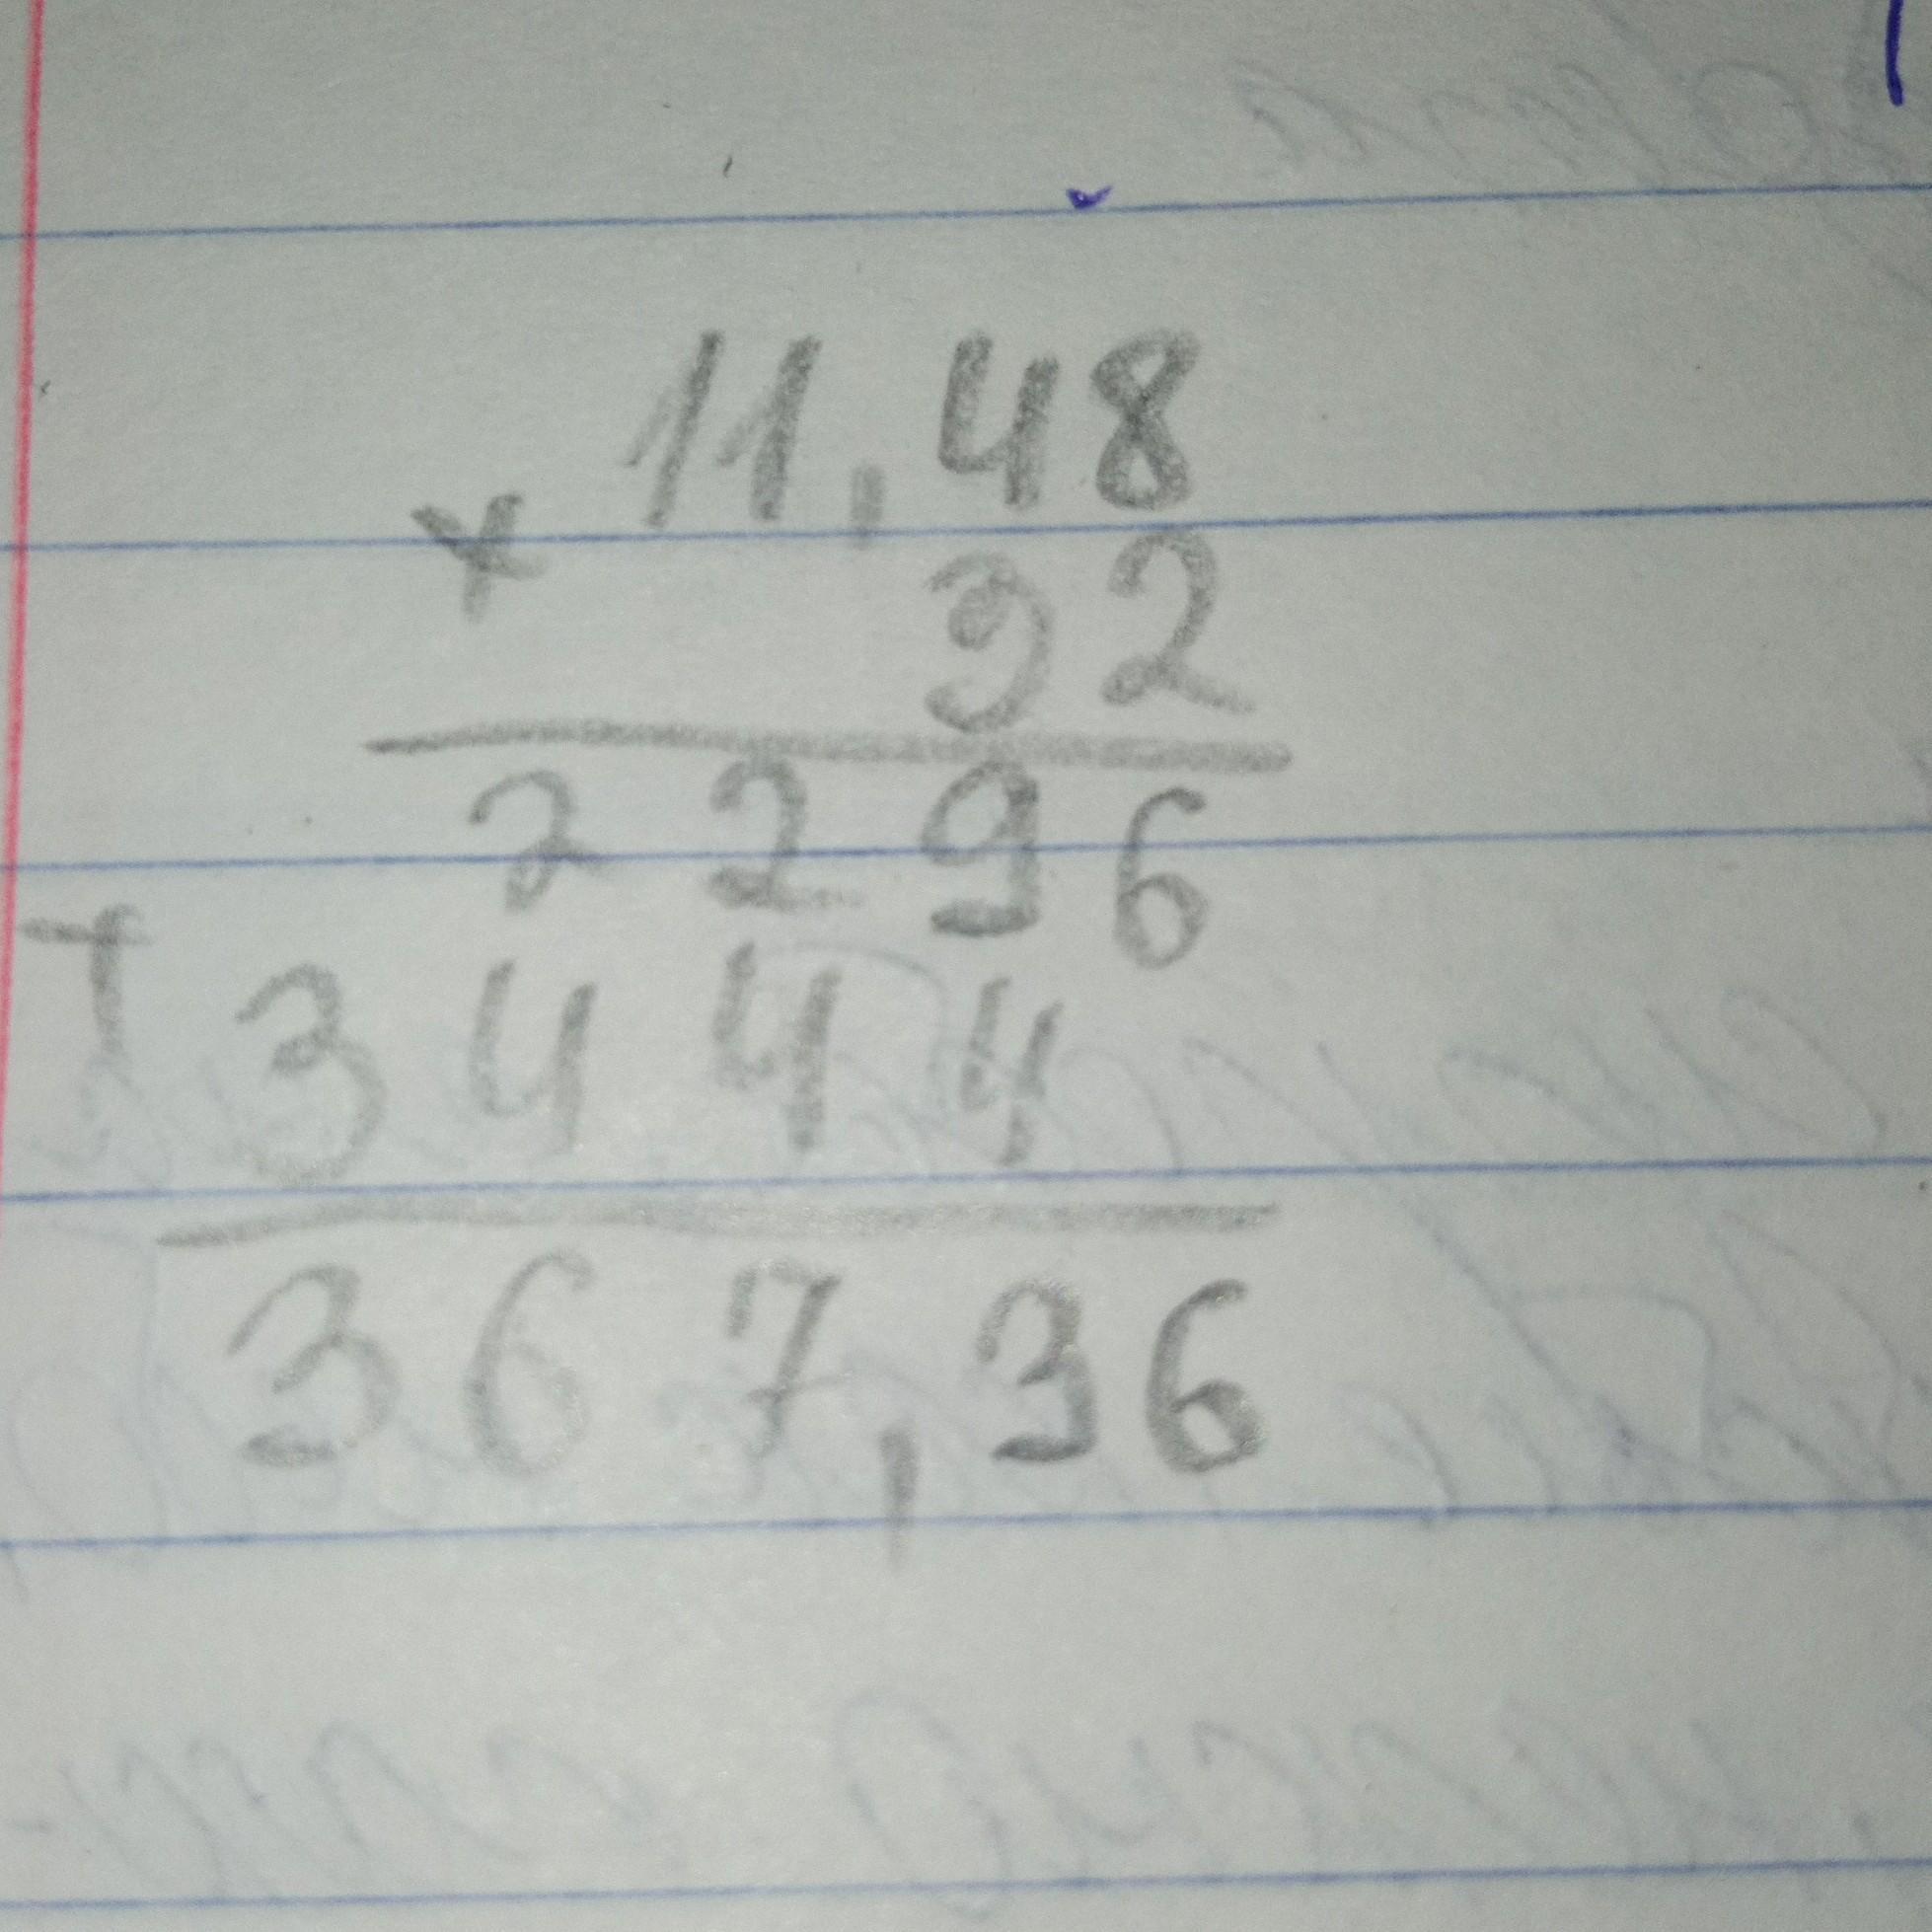 11,48
× 32
2296
+ 3444
367,36